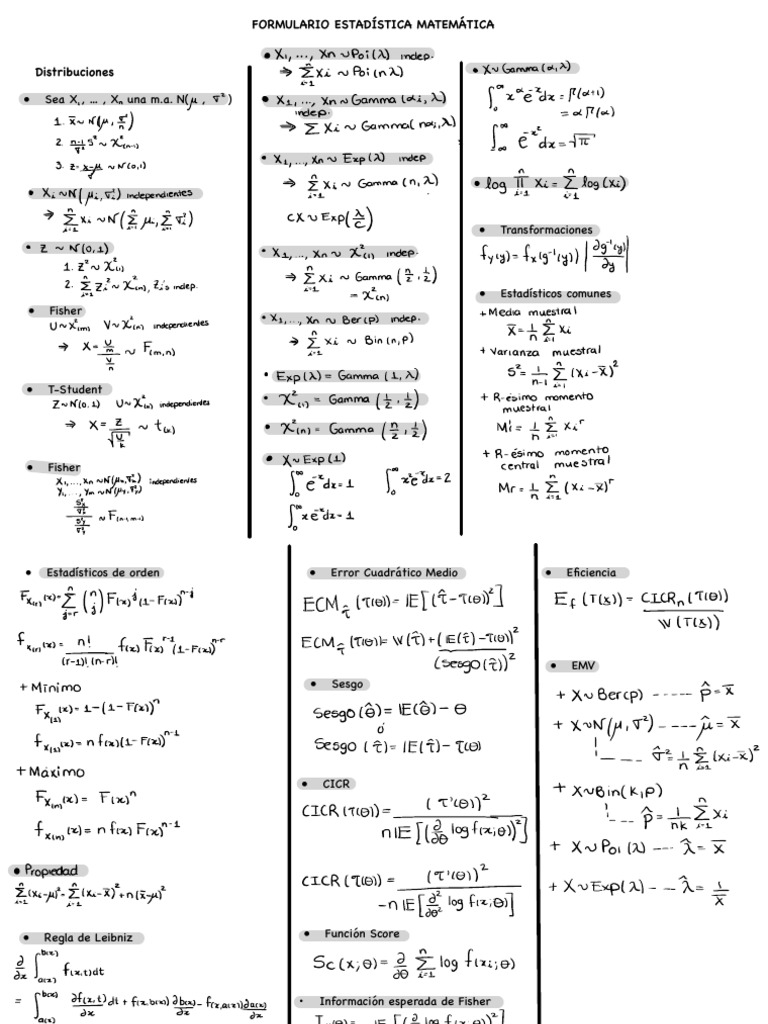 FORMULARIO ESTADÍSTICA MATEMÁTICA
Distribuciones
• Sea X₁, ..., Xₙ una m.a. N(μ, σ²)
1. x̄ ~ N(μ, σ²/n)
2. (n-1)/σ² S² ~ χ²₍ₙ₋₁₎
3. Z = (x-μ)/σ ~ N(0,1)
• Xᵢ ~ N(μᵢ, σᵢ²) independientes
⇒ Σⁿᵢ₌₁ Xᵢ ~ N(Σⁿᵢ₌₁ μᵢ, Σⁿᵢ₌₁ σᵢ²)
• Z ~ N(0,1)
1. Z² ~ χ²₍₁₎
2. Σⁿᵢ₌₁ Zᵢ² ~ χ²₍ₙ₎, Zᵢ's indep.
• Fisher
U ~ χ²₍ₘ₎ V ~ χ²₍ₙ₎ independientes
⇒ X = (U/m)/(V/n) ~ F₍ₘ,ₙ₎
• T-Student
Z ~ N(0,1) U ~ χ²₍ₖ₎ independientes
⇒ X = Z/√(U/k) ~ t₍ₖ₎
• Fisher
X₁, ..., Xₙ ~ N(μₓ, σₓ²) independientes
Y₁, ..., Yₘ ~ N(μᵧ, σᵧ²)
(Sₓ²/σₓ²)/(Sᵧ²/σᵧ²) ~ F₍ₙ₋₁,ₘ₋₁₎
• X₁, ..., Xₙ ~ Poi(λ) indep.
⇒ Σⁿᵢ₌₁ Xᵢ ~ Poi(nλ)
• X₁, ..., Xₙ ~ Gamma(αᵢ, λ)
indep.
⇒ Σ Xᵢ ~ Gamma(nαᵢ, λ)
• X₁, ..., Xₙ ~ Exp(λ) indep
⇒ Σⁿᵢ₌₁ Xᵢ ~ Gamma(n, λ)
cX ~ Exp(λ/c)
• X₁, ..., Xₙ ~ χ²₍₁₎ indep.
⇒ Σⁿᵢ₌₁ Xᵢ ~ Gamma(n/2, 1/2)
= χ²₍ₙ₎
• X₁, ..., Xₙ ~ Ber(p) indep.
⇒ Σⁿᵢ₌₁ Xᵢ ~ Bin(n, p)
• Exp(λ) = Gamma(1, λ)
• χ²₍₁₎ = Gamma(1/2, 1/2)
• χ²₍ₙ₎ = Gamma(n/2, 1/2)
• X ~ Exp(1)
∫₀^∞ e^(-x) dx = 1 ∫₀^∞ x² e^(-x) dx = 2
∫₀^∞ x e^(-x) dx = 1
• X ~ Gamma(α, λ)
∫₀^∞ x^α e^(-x) dx = Γ(α+1)
= αΓ(α)
∫₋∞^∞ e^(-x²) dx = √π
• log Πⁿᵢ₌₁ Xᵢ = Σⁿᵢ₌₁ log(Xᵢ)
• Transformaciones
f_Y(y) = f_X(g⁻¹(y)) |∂g⁻¹(y)/∂y|
• Estadísticos comunes
+ Media muestral
X̄ = 1/n Σⁿᵢ₌₁ Xᵢ
+ Varianza muestral
S² = 1/(n-1) Σⁿᵢ₌₁ (Xᵢ - X̄)²
+ R-ésimo momento
muestral
M'ᵢ = 1/n Σⁿᵢ₌₁ Xᵢ^r
+ R-ésimo momento
central muestral
Mr = 1/n Σⁿᵢ₌₁ (Xᵢ - X̄)^r
• Estadísticos de orden
F_X₍ᵣ₎(x) = Σⁿⱼ₌ᵣ (n j) F(x)^j (1-F(x))^(n-j)
f_X₍ᵣ₎(x) = n!/((r-1)!(n-r)!) f(x) F(x)^(r-1) (1-F(x))^(n-r)
+ Mínimo
F_X₍₁₎(x) = 1-(1-F(x))^n
f_X₍₁₎(x) = n f(x)(1-F(x))^(n-1)
+ Máximo
F_X₍ₙ₎(x) = F(x)^n
f_X₍ₙ₎(x) = n f(x) F(x)^(n-1)
• Propiedad
Σⁿᵢ₌₁ (xᵢ-μ)² = Σⁿᵢ₌₁ (xᵢ-x̄)² + n(x̄-μ)²
• Regla de Leibniz
∂/∂x ∫_a(x)^b(x) f(x,t)dt
= ∫_a(x)^b(x) ∂f(x,t)/∂x dt + f(x,b(x)) ∂b(x)/∂x - f(x,a(x)) ∂a(x)/∂x
• Error Cuadrático Medio
ECM_τ̂ (τ(θ)) = IE[(τ̂ - τ(θ))²]
ECM_τ̂ (τ(θ)) = V(τ̂) + (IE(τ̂) - τ(θ))²
(sesgo(τ̂))²
• Sesgo
Sesgo(θ̂) = IE(θ̂) - θ
ó
Sesgo(τ̂) = IE(τ̂) - τ(θ)
• CICR
CICR(τ(θ)) = (τ'(θ))² / nIE[(∂/∂θ log f(x;θ))²]
CICR(τ(θ)) = (τ'(θ))² / -nIE[∂²/∂θ² log f(x;θ)]
• Función Score
Sc(x;θ) = ∂/∂θ Σⁿᵢ₌₁ log f(xᵢ;θ)
• Información esperada de Fisher
• Eficiencia
E_f(T(x)) = CICRₙ(τ(θ)) / V(T(x))
• EMV
+ X ~ Ber(p) ----- p̂ = x̄
+ X ~ N(μ, σ²) ---- μ̂ = x̄
---- σ̂² = 1/n Σⁿᵢ₌₁ (xᵢ-x̄)²
+ X ~ Bin(k,p)
---- p̂ = 1/nk Σⁿᵢ₌₁ xᵢ
+ X ~ Poi(λ) --- λ̂ = x̄
+ X ~ Exp(θ) -- λ̂ = 1/x̄